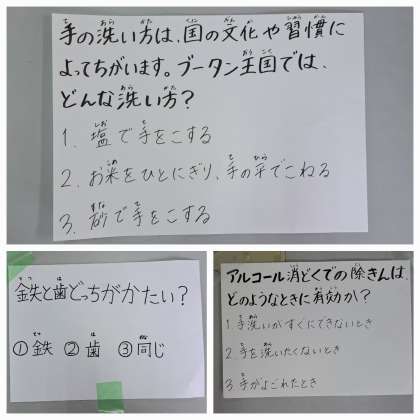 手の洗い方は、国の文化や習慣に
よってちがいます。ブータン王国では、
どんな洗い方？
1. 塩で手をこする
2. お米をひとにぎり、手の平でこねる
3. 砂で手をこする
鉄と歯どっちがかたい？
① 鉄 ② 歯 ③ 同じ
アルコール消どくでの除きんは、
どのようなときに有効か？
1 手洗いがすぐにできないとき
2 手を洗いたくないとき
3 手がよごれたとき